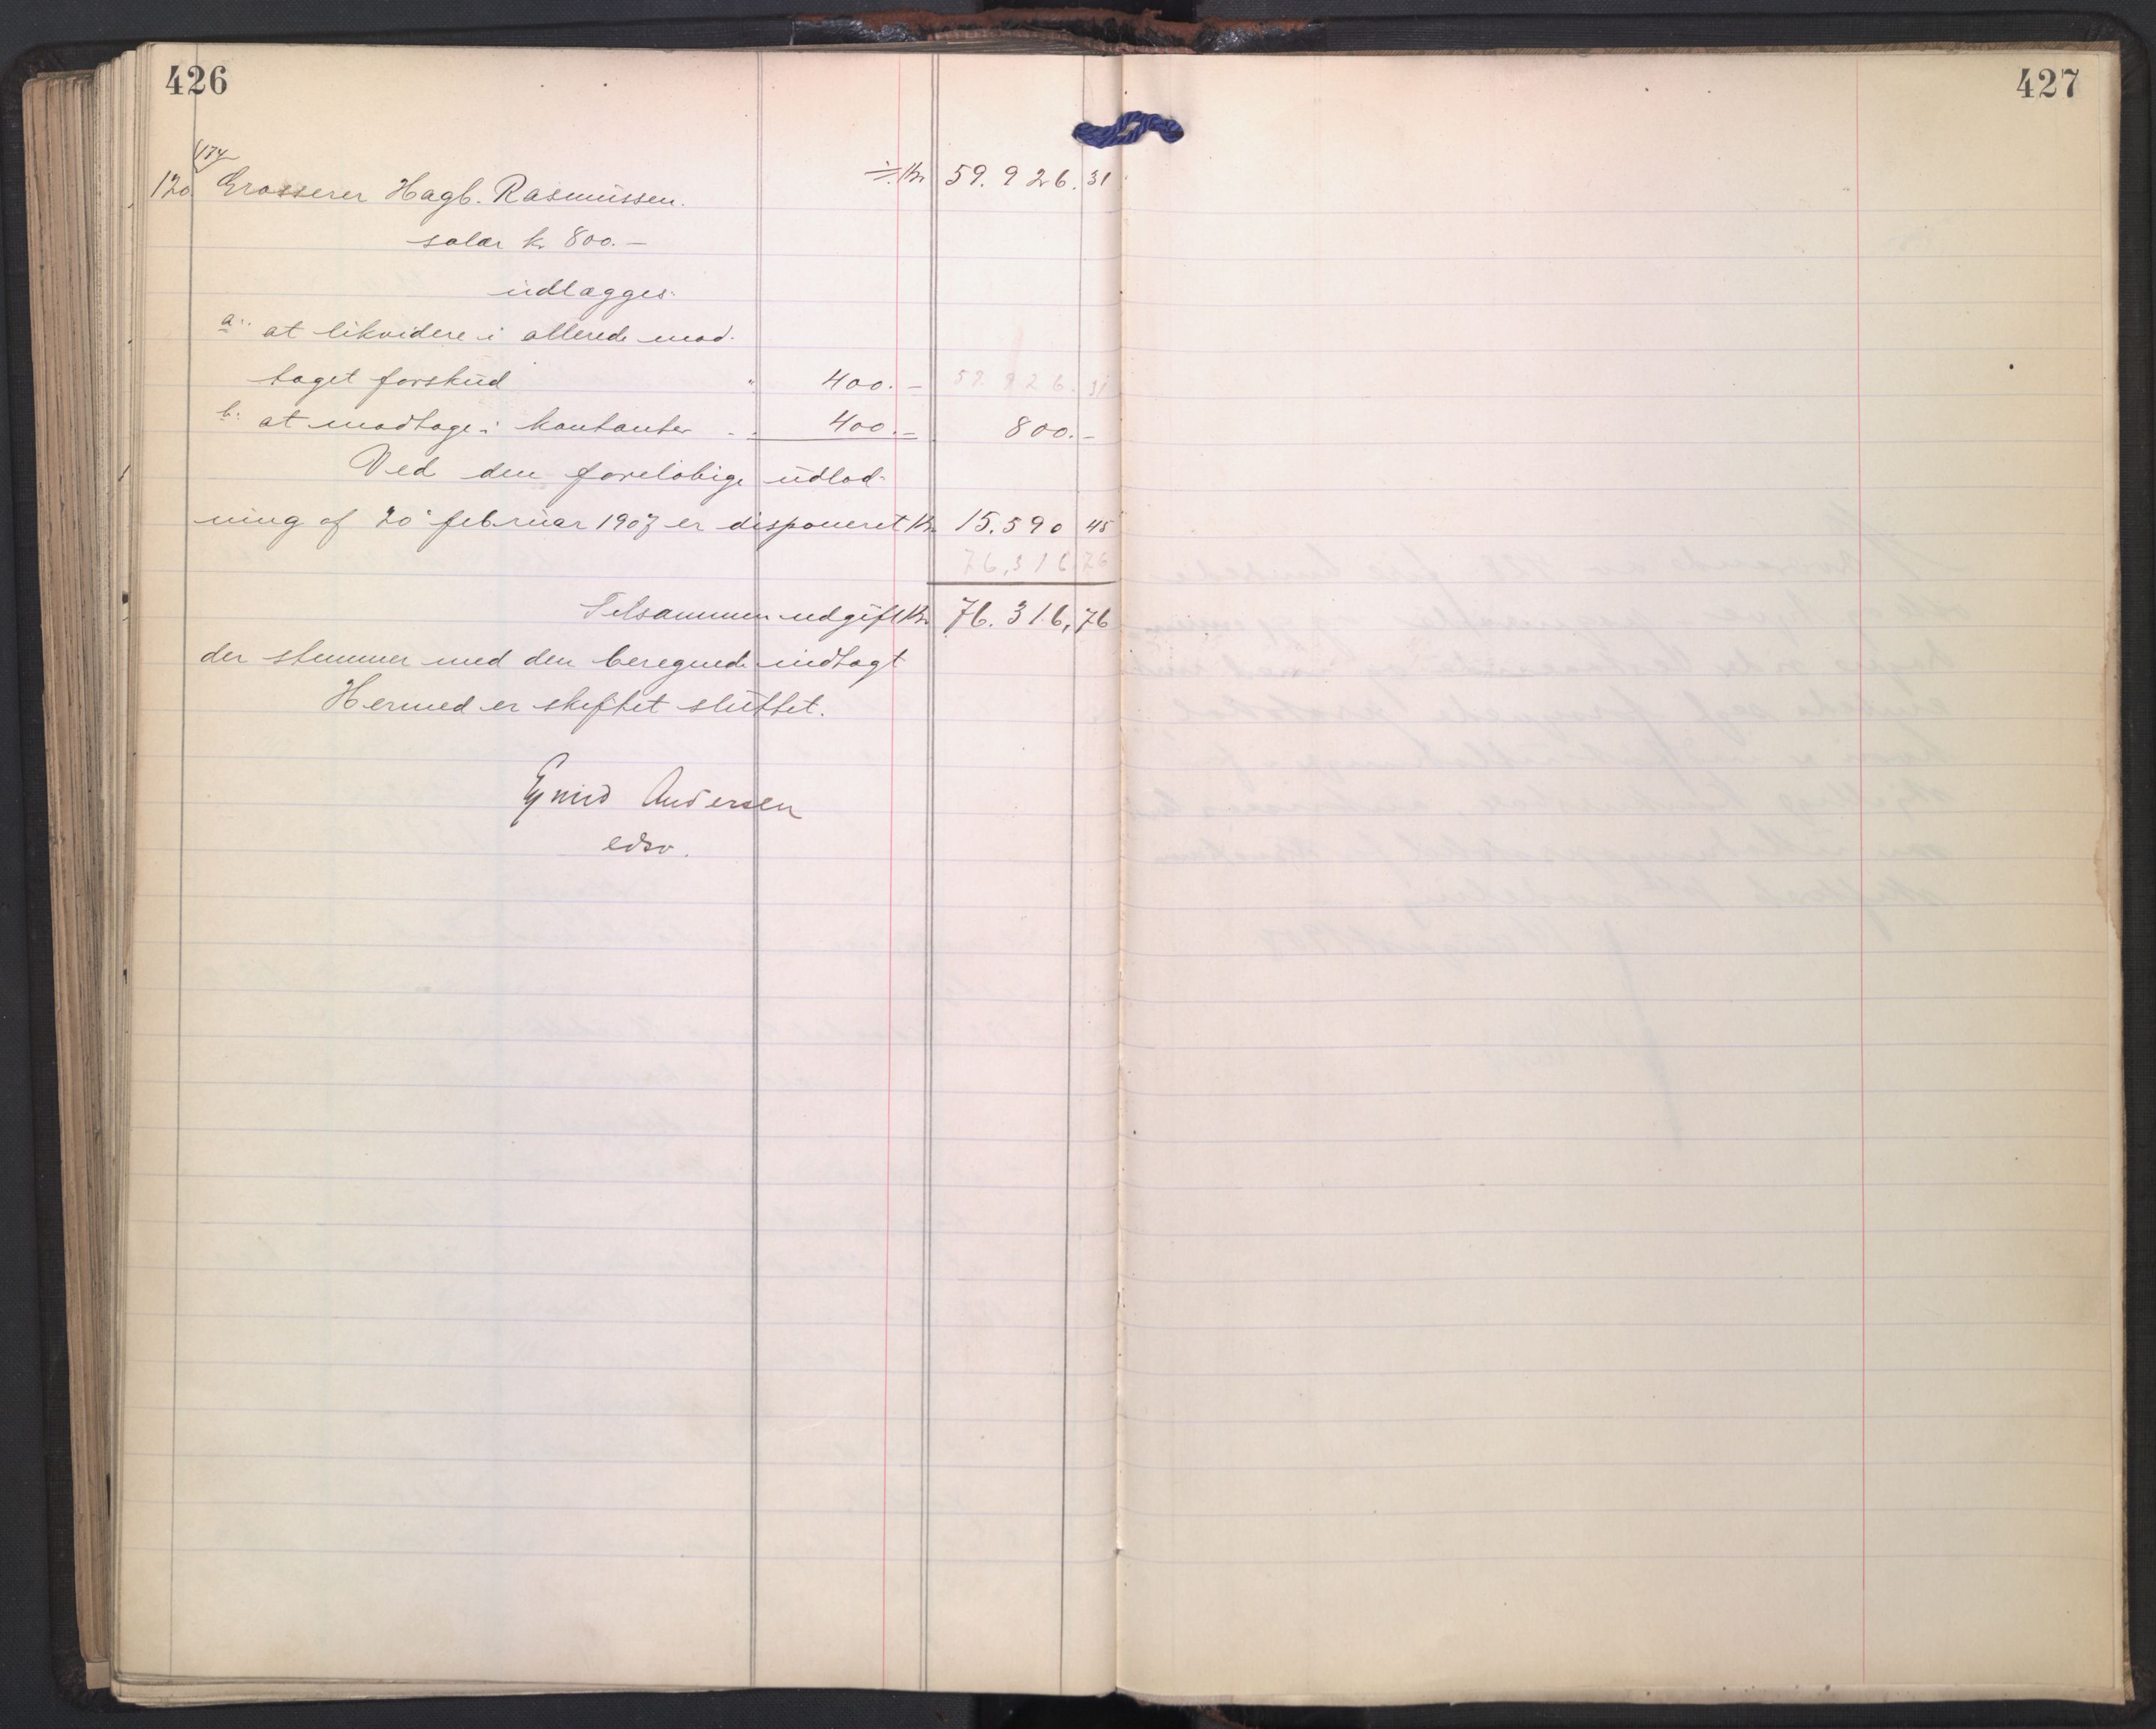 426
427
174
120. Grosserer Hagb. Rasmussen. ÷ Kr 59.926.31
salær kr 800.-
udlægges:
a: at likvidere i allerede mod-
taget forskud " 400.- 59.926.31
b: at modtage i kontanter - 400.- 800.-
Ved den foreløbige udlod-
ning af 20 februar 1907 er disponeret Kr. 15.590 45
76,316,76
Tilsammen udgift Kr 76.316,76
der stemmer med den beregnede indtægt
Hermed er skiftet sluttet.
Andersen
edsv.